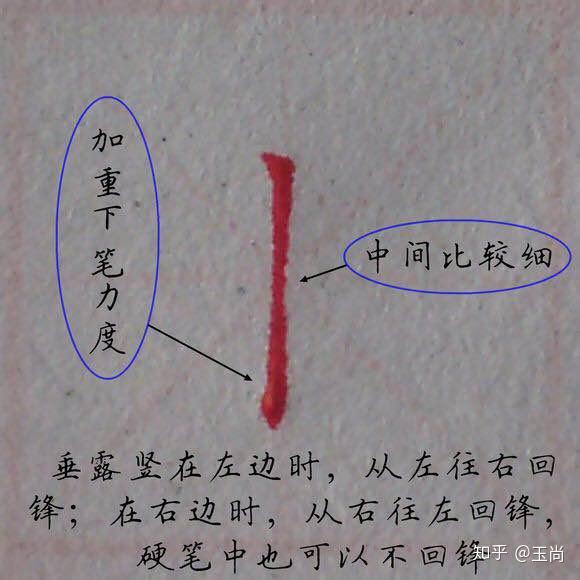 加重下笔力度
中间比较细
垂露竖在左边时，从左往右回
锋；在右边时，从右往左回锋，
硬笔中也可以不回锋
知乎 @玉尚